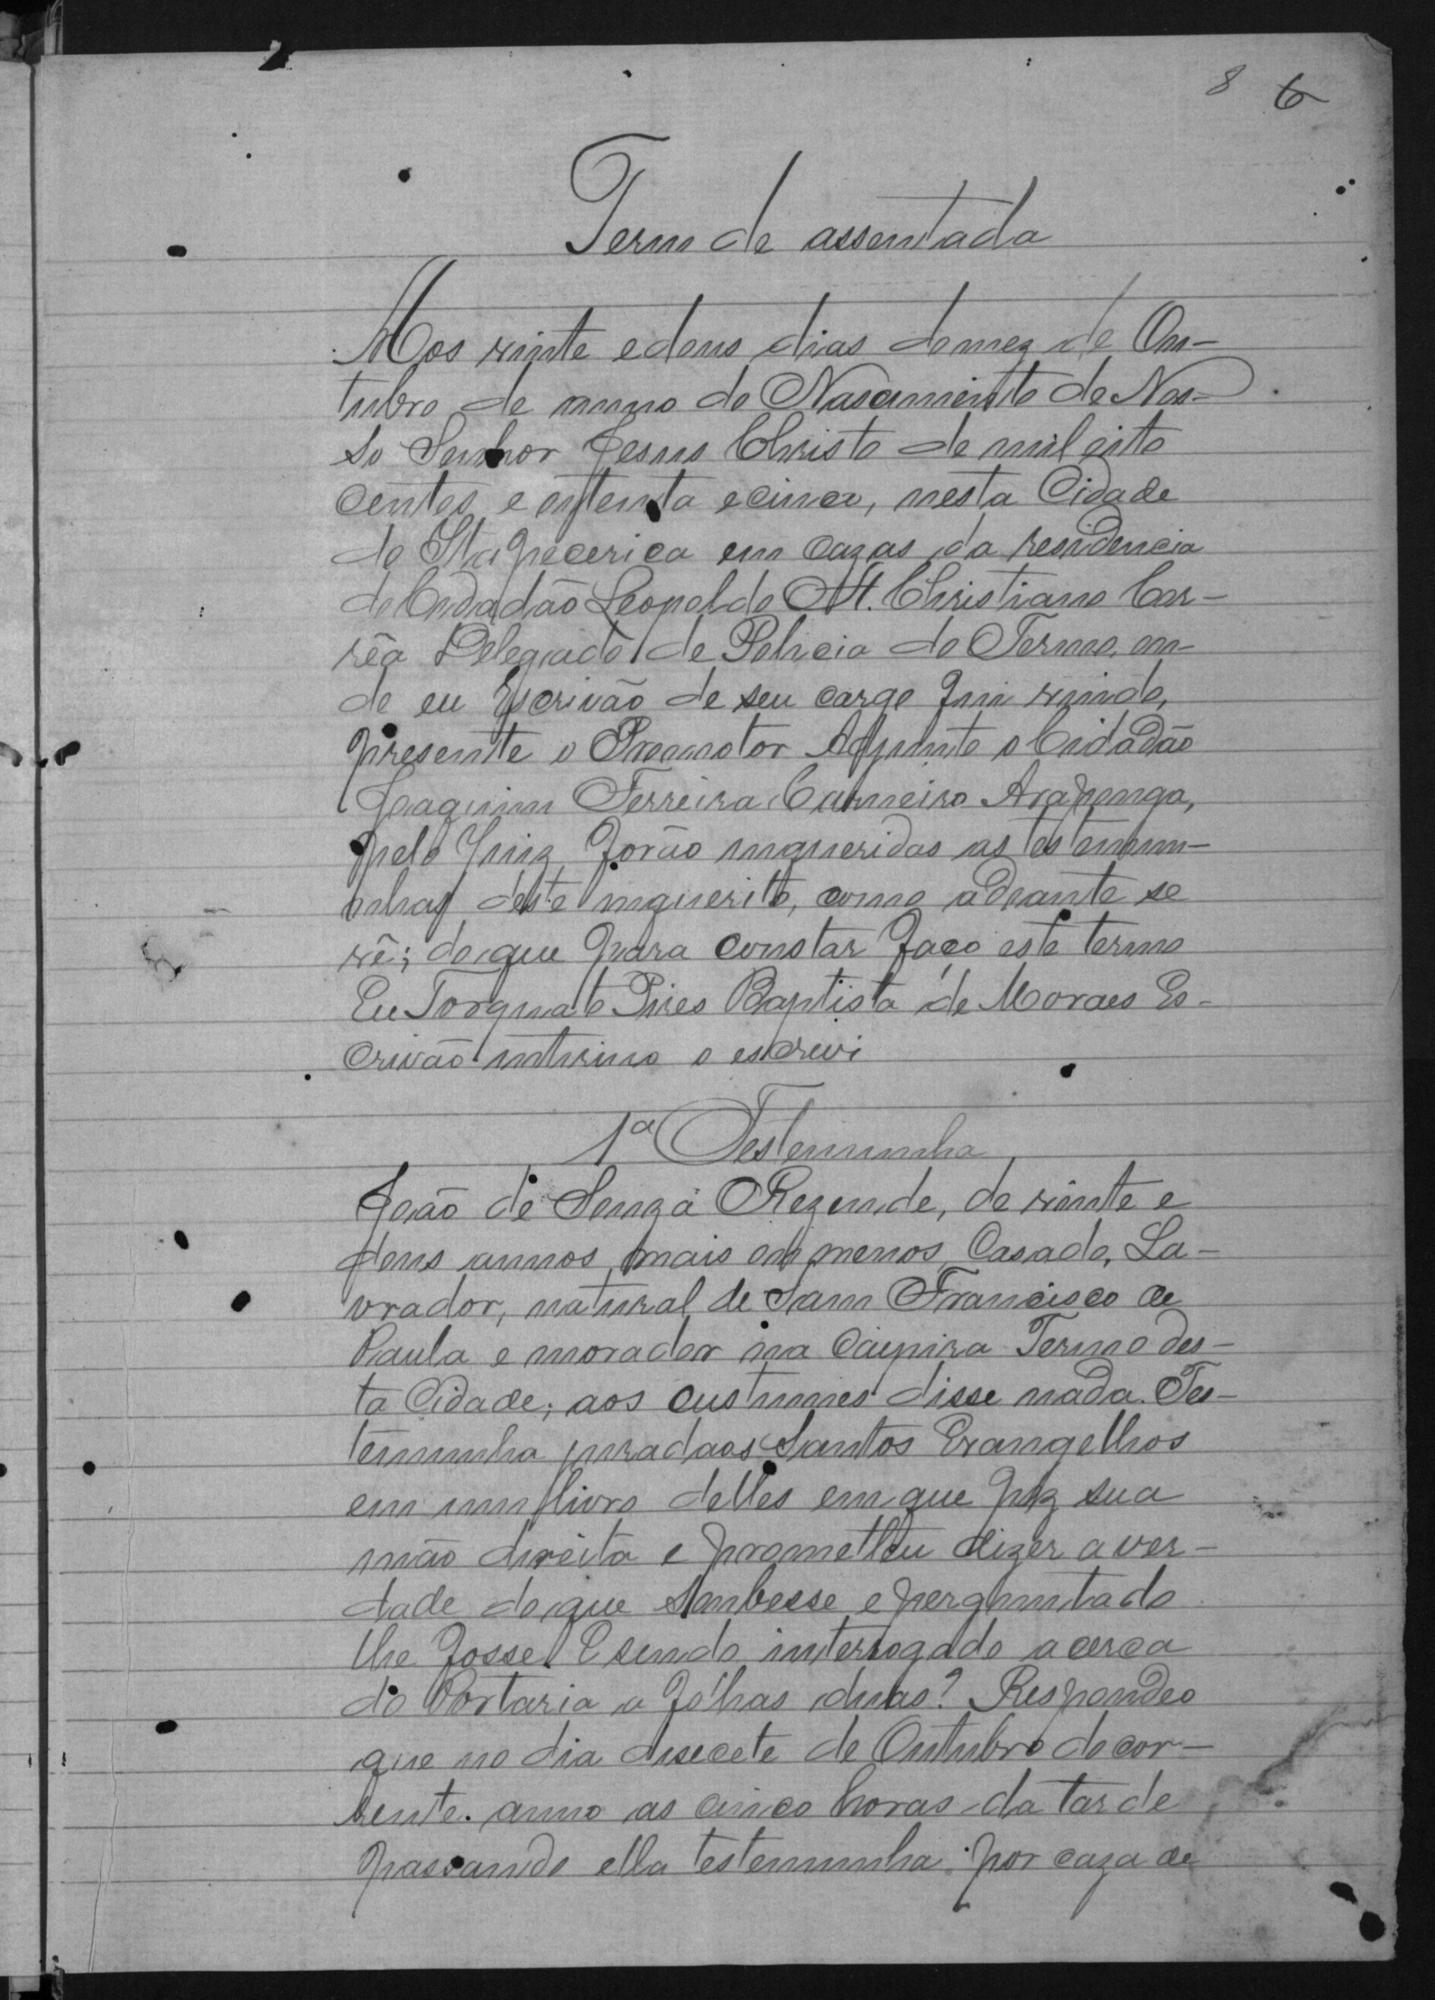 8 6
Term de assentada
Aos vinte e dous dias do mez de Ou-
tubro de anno do Nascimento de Nos-
so Senhor Jesus Christo de mil oito
centos e oitenta e cinco, nesta Cidade
do Itapecerica em cazas da residencia
do Cidadão Leopoldo M. Christiano Cor-
rêa Delegado de Policia do Termo, on-
de eu Escrivão de seu cargo fui vindo,
presente o Promotor Adjunto o Cidadão
Joaquim Ferreira Carneiro Araponga,
pelo Juiz forão inqueridas as testemu-
nhas deste inquerito, como adeante se
vê; do que para constar faço este termo
Eu Torquato Pires Baptista de Moraes Es-
crivão interino o escrevi
1ª Testemunha
João de Souza Rezende, de vinte e
dous annos mais ou menos, Casado, La-
vrador, natural de Sam Francisco de
Paula e morador na Caipira Termo des-
ta Cidade; aos custumes disse nada. Tes-
temunha jurada aos Santos Evangelhos
em um livro delles em que poz sua
mão direita e prometteu dizer a ver-
dade do que soubesse e perguntado
lhe fosse. E sendo interrogado acerca
do Portaria a folhas duas? Respondeo
que no dia desecete de Outubro do cor-
rente anno as cinco horas da tarde
passando ella testemunha por caza de